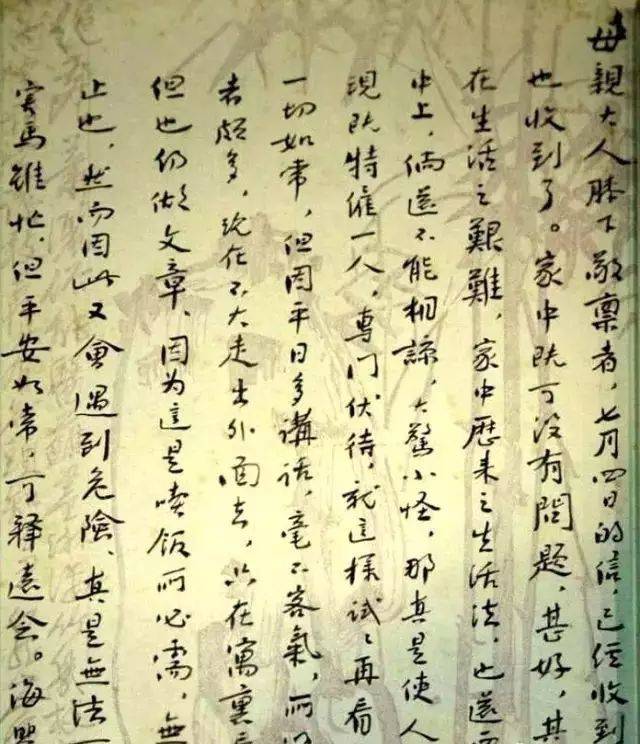 母親大人膝下敬稟者，七月四日的信，已經收到
也收到了。家中既可没有問題，甚好，其
在生活之艱難，家中歷来之生活法，也還
中上，倘還不能相諒，大驚小怪，那真是使人
現既特僱一人，專门伏待，就這様試試再看
一切如常，但因平日多講話，毫不客氣，而
者頗多，现在不大走出外面去，只在寓裏
但也仍做文章，因为這是喫飯所必需，無
止也，然而因此又會遇到危險，真是無法
害馬雖忙，但平安如常，可釋遠念。海嬰